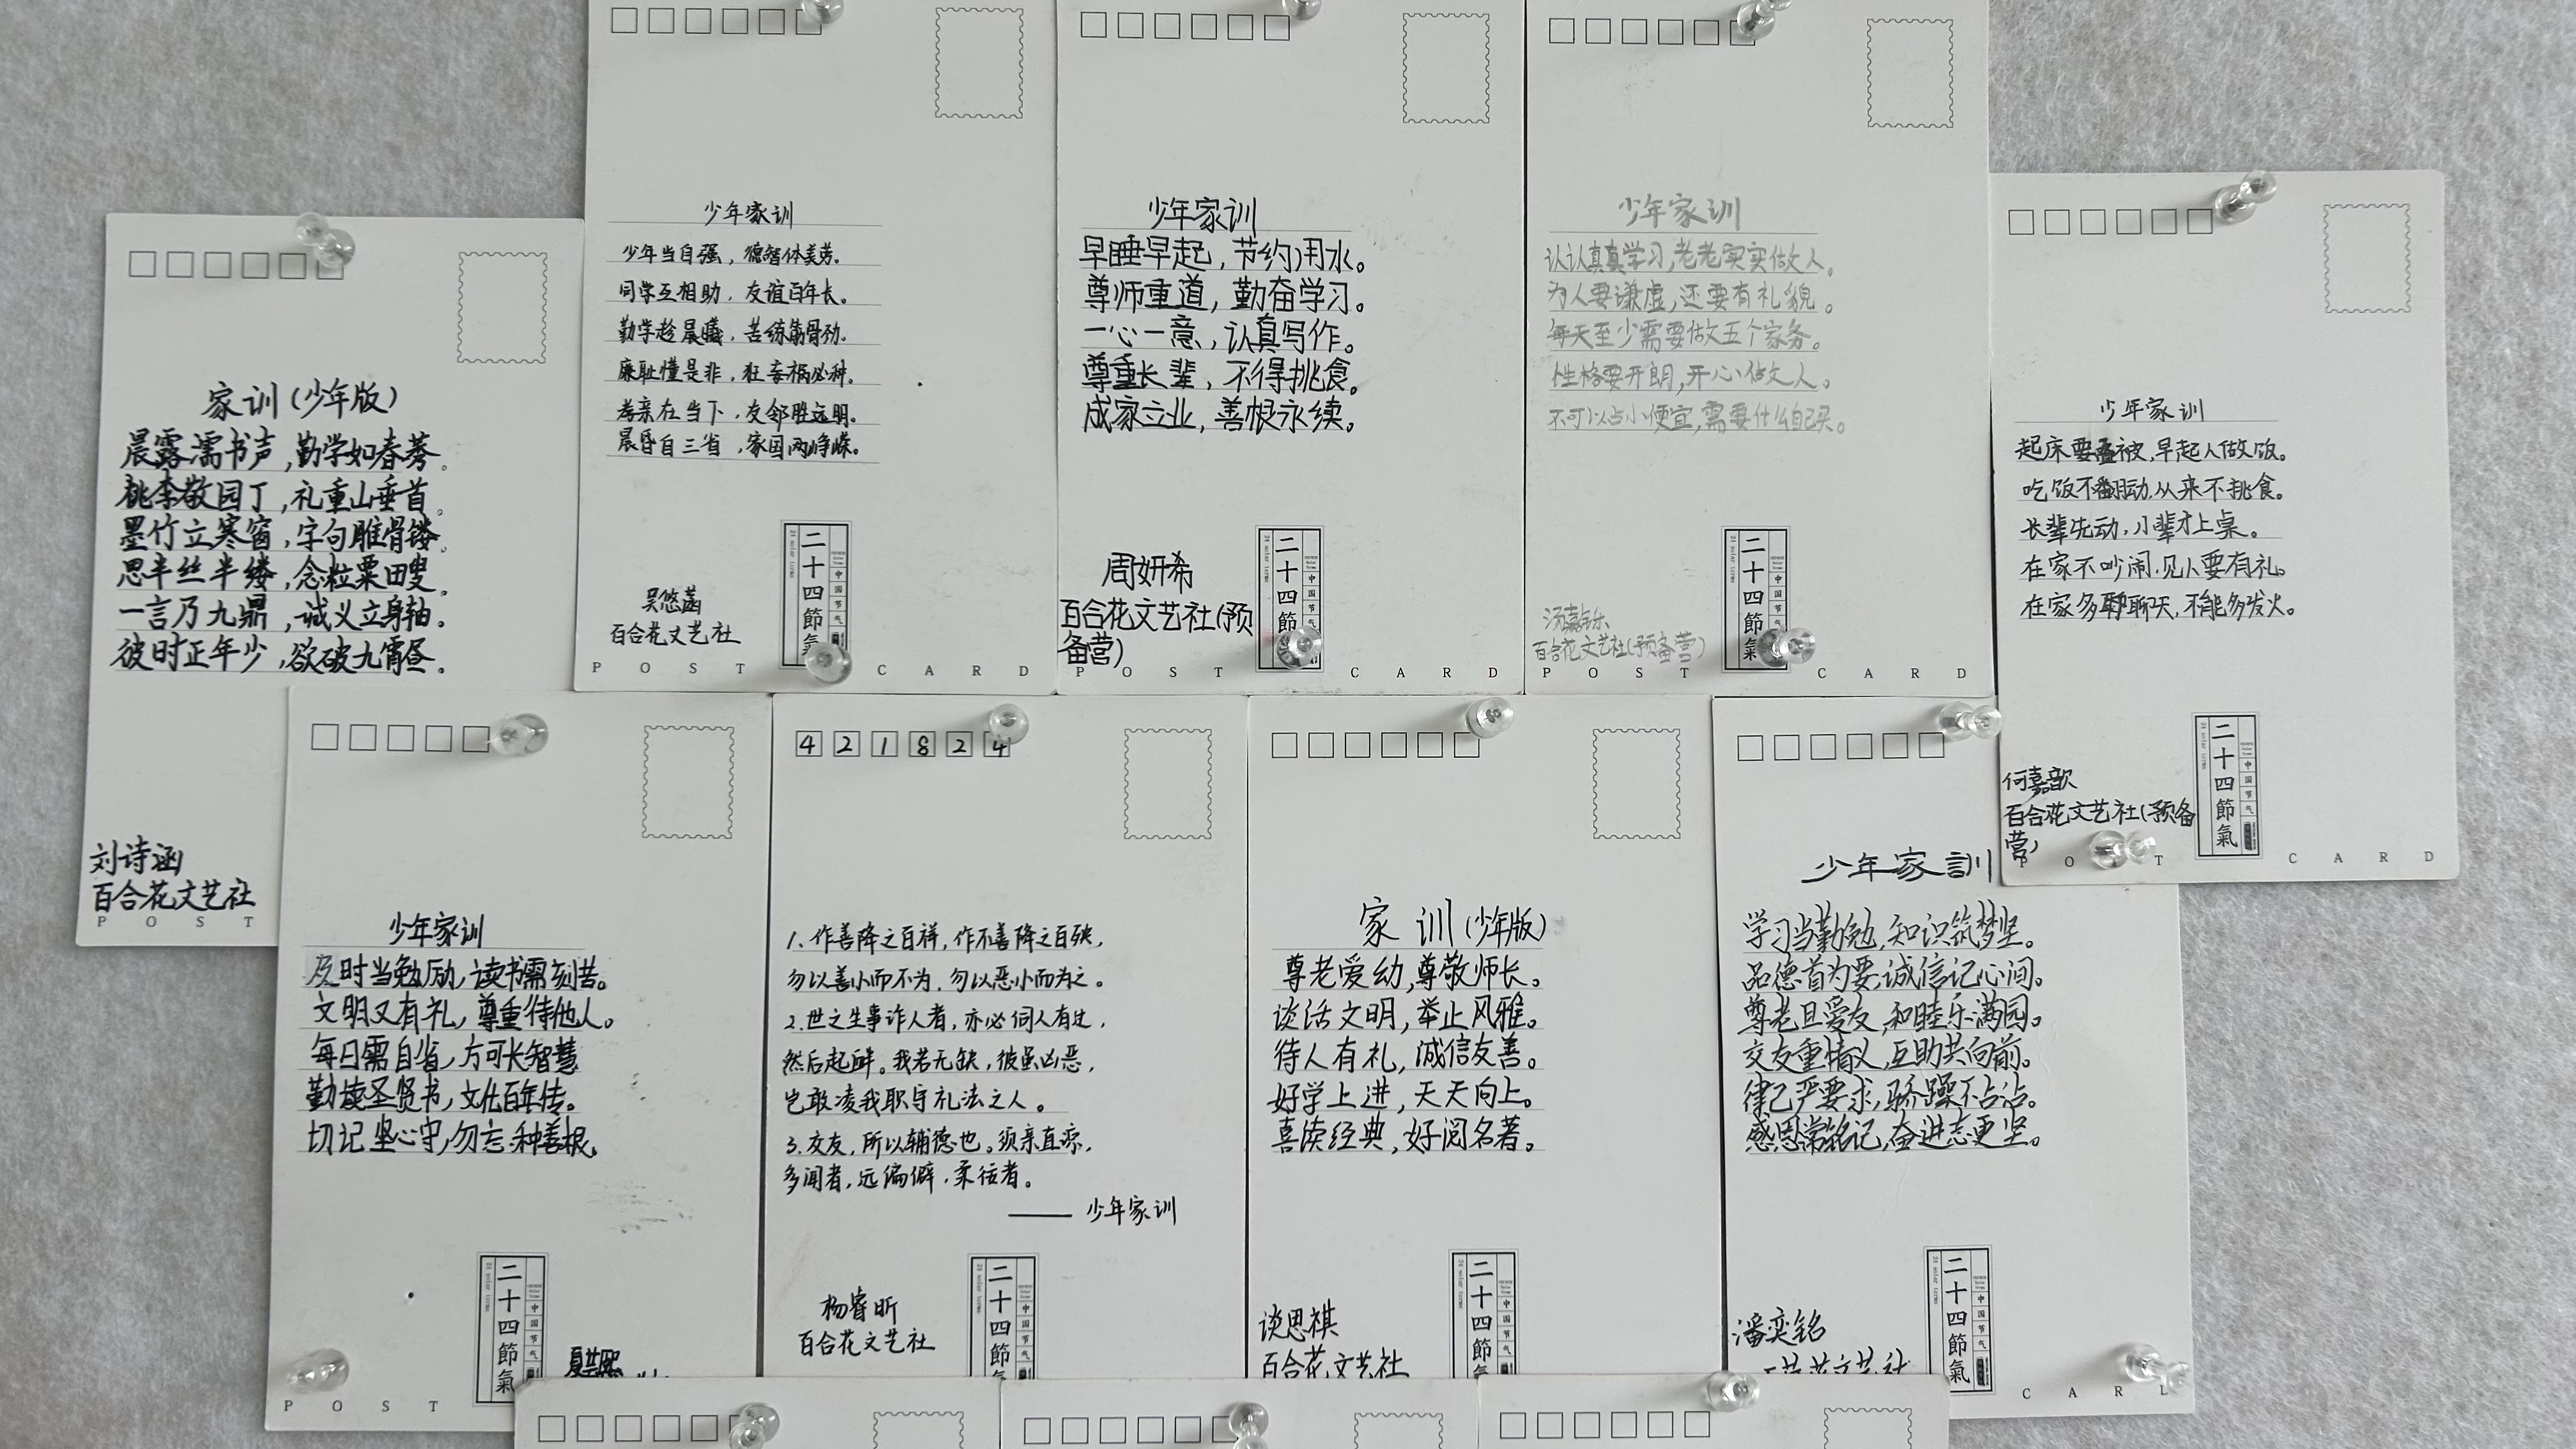 家训(少年版)
晨露濡书声,勤学如春莠。
桃李敬园丁,礼重山垂首。
墨竹立寒窗,字句雕骨镂。
思半丝半缕,念粒粟田叟。
一言乃九鼎,诚义立身轴。
彼时正年少,欲破九霄昼。
刘诗涵
百合花文艺社
POST
少年家训
少年当自强,德智体美劳。
同学互相助,友谊百年长。
勤学趁晨曦,苦练筋骨劲。
廉耻懂是非,狂妄祸必种。
孝亲在当下,友邻胜远明。
晨昏自三省,家国两峥嵘。
吴悠菡
百合花文艺社
二十四節氣
POST CARD
少年家训
早睡早起,节约用水。
尊师重道,勤奋学习。
一心一意,认真写作。
尊重长辈,不得挑食。
成家立业,善根永续。
周妍希
百合花文艺社(预
备营)
二十四節
POST CARD
少年家训
认认真真学习,老老实实做人。
为人要谦虚,还要有礼貌。
每天至少需要做五个家务。
性格要开朗,开心做人。
不可以占小便宜,需要什么自己买。
汤嘉乐
百合花文艺社(预备营)
二十四節氣
POST CARD
少年家训
起床要叠被,早起人做饭。
吃饭不翻动,从来不挑食。
长辈先动,小辈才上桌。
在家不吵闹,见人要有礼。
在家多聊聊天,不能多发火。
何嘉歆
百合花文艺社(预备
营)
二十四節氣
POST CARD
少年家训
及时当勉励,读书需刻苦。
文明又有礼,尊重待他人。
每日需自省,方可长智慧
勤读圣贤书,文化百年传。
切记坚心守,勿忘种善根。
二十四節氣
POST
421824
1.作善降之百祥,作不善降之百殃,
勿以善小而不为,勿以恶小而为之。
2.世之生事诈人者,亦必伺人有过,
然后起衅。我若无缺,彼虽凶恶,
岂敢凌我职守礼法之人。
3.交友,所以辅德也。须亲直谅,
多闻者,远偏僻,柔佞者。
—— 少年家训
杨睿昕
百合花文艺社
二十四節
家训(少年版)
尊老爱幼,尊敬师长。
谈话文明,举止风雅。
待人有礼,诚信友善。
好学上进,天天向上。
喜读经典,好阅名著。
谈思祺
百合花文艺社
二十四節
少年家訓
学习当勤勉,知识筑梦坚。
品德首为要,诚信记心间。
尊老且爱友,和睦乐满园。
交友重情义,互助共向前。
律己严要求,骄躁不占沾。
感恩常铭记,奋进志更坚。
潘奕铭
二十四節氣
CARD